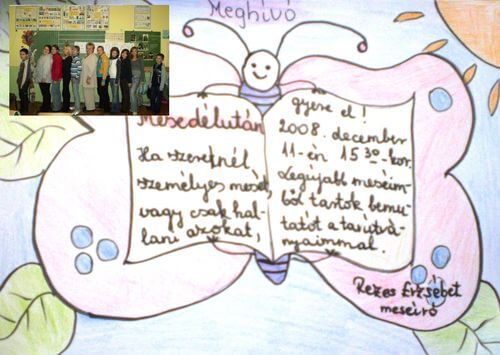 Meghívó
Mesedélután
Ha szeretnél
személyes mesét,
vagy csak hal-
lani azokat,
gyere el!
2008. december
11-én 15 30-kor.
Legújabb meséim-
ből tartok bemu-
tatót a tanítvá-
nyaimmal.
Rezes Erzsébet
meseíró